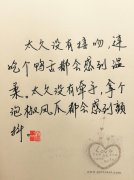 太久没有接吻，连
吃个鸭舌都会感到温
柔。太久没有牵手，拿个
泡椒凤爪都会感到颤
抖